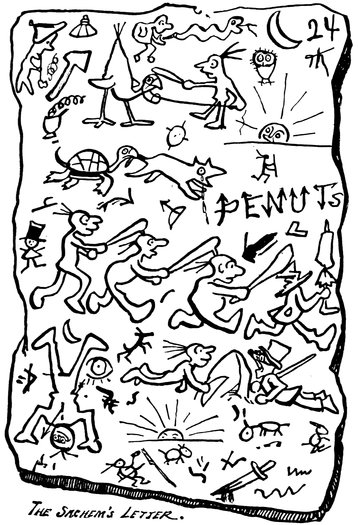 24
PENUTS
THE SACHEM'S LETTER.